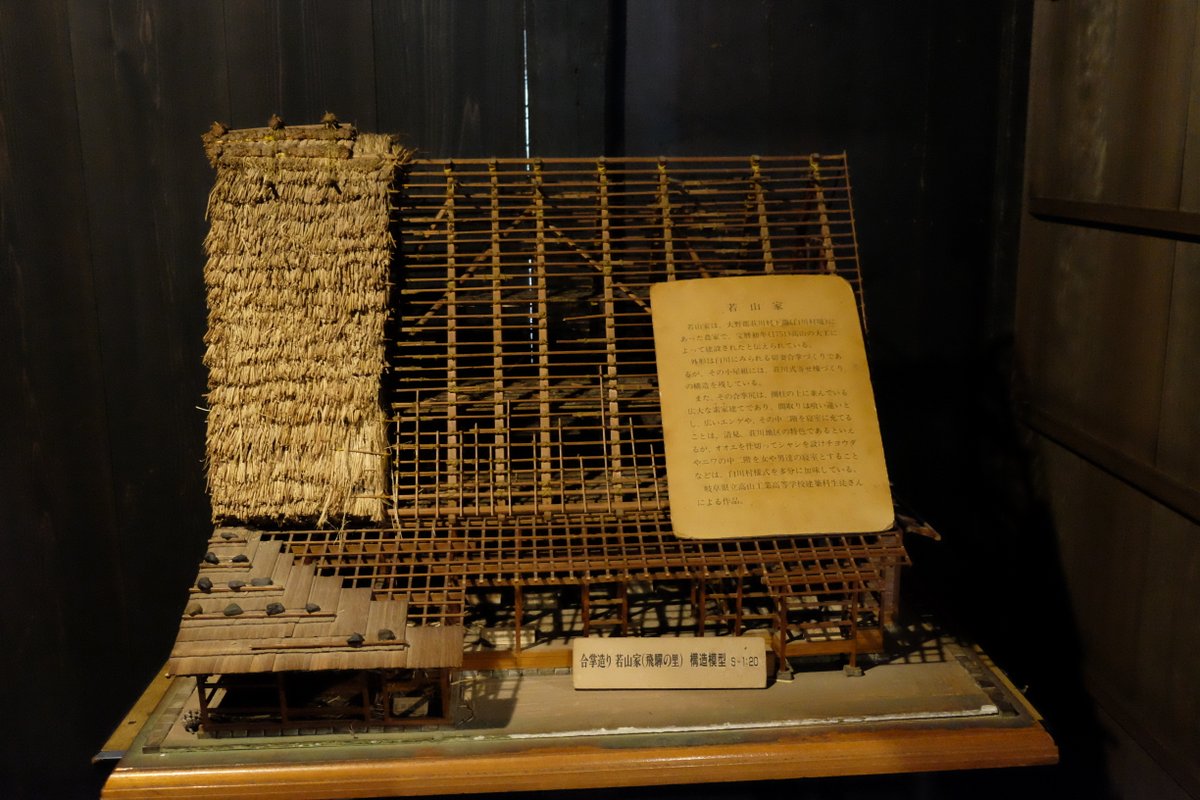 若山家
若山家は、大野郡荘川村下滝(白川村境)に
あった農家で、宝暦初年(1751)高山の大工に
よって建設されたと伝えられている。
外形は白川にみられる切妻合掌づくりであ
るが、その小屋組には、荘川式寄せ棟づくり
の構造を残している。
また、その合掌尻は、側柱の上に並んでいる
広大な素家建てであり、間取りは喰い違いと
し、広いエンゲや、その中二階を寝室に充てる
ことは、清見、荘川地区の特色であるといえ
るが、オオエを仕切ってシャンを設けチョウダ
やニワの中二階を女や男達の寝室とすること
などは、白川村様式を多分に加味している。
岐阜県立高山工業高等学校建築科生徒さん
による作品。
合掌造り 若山家(飛騨の里) 構造模型 S=1:20